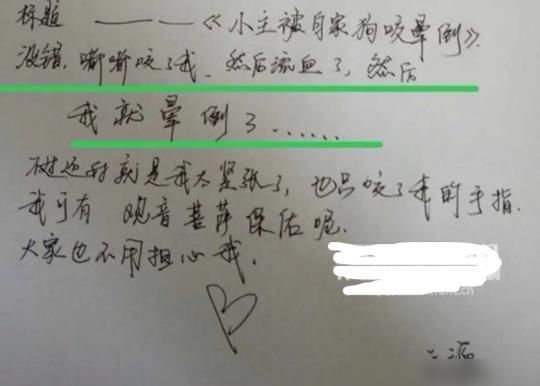 标题 ———《小主被自家狗咬晕倒》.
没错，嘶嘶咬了我、然后流血了，然后
我就晕倒了……
不过还好就是我太紧张了，也只咬了我的手指.
我可有 观音菩萨保佑呢.
大家也不用担心我.